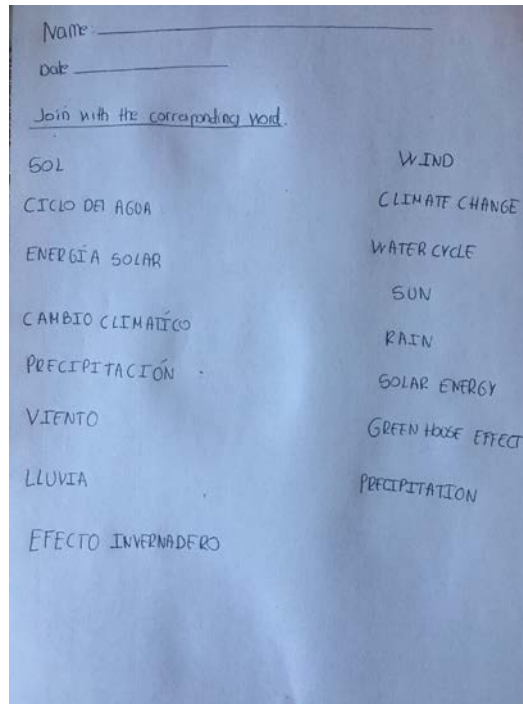 Name: ____________
Date ____________
Join with the corresponding word.
SOL
CICLO DEl AGUA
ENERGÍA SOLAR
CAMBIO CLIMATÍCO
PRECIPITACIÓN
VIENTO
LLUVIA
EFECTO INVERNADERO
WIND
CLIMATE CHANGE
WATER CYCLE
SUN
RAIN
SOLAR ENERGY
GREEN HOUSE EFFECT
PRECIPITATION